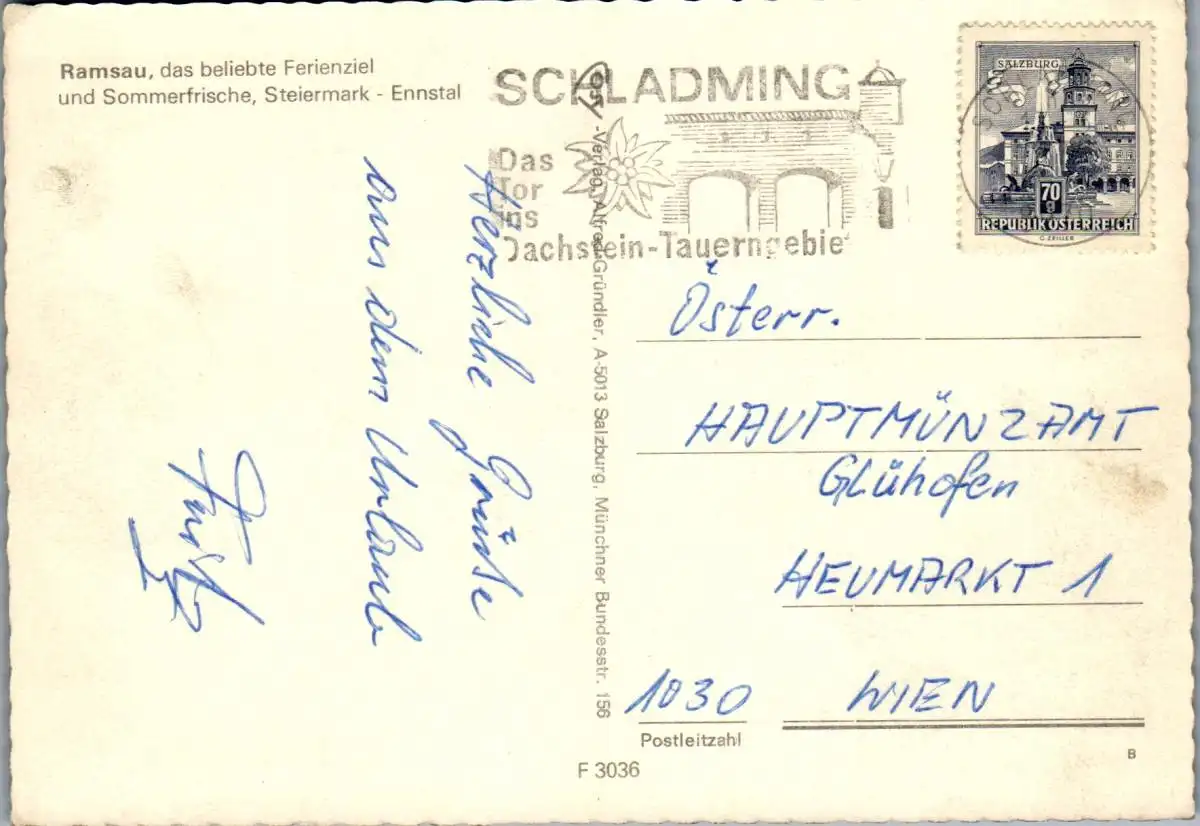 Ramsau, das beliebte Ferienziel
und Sommerfrische, Steiermark - Ennstal
SCHLADMING
Das
Tor
ins
Dachstein-Tauerngebie
SALZBURG
70
g
REPUBLIK ÖSTERREICH
G. ZEILLER
Herzliche Grüße
aus dem Urlaub
Fritz
-Verlag Alfred Gründler, A-5013 Salzburg, Münchner Bundesstr. 156
Österr.
HAUPTMÜNZAMT
Glühofen
HEUMARKT 1
1030 WIEN
Postleitzahl
F 3036
B